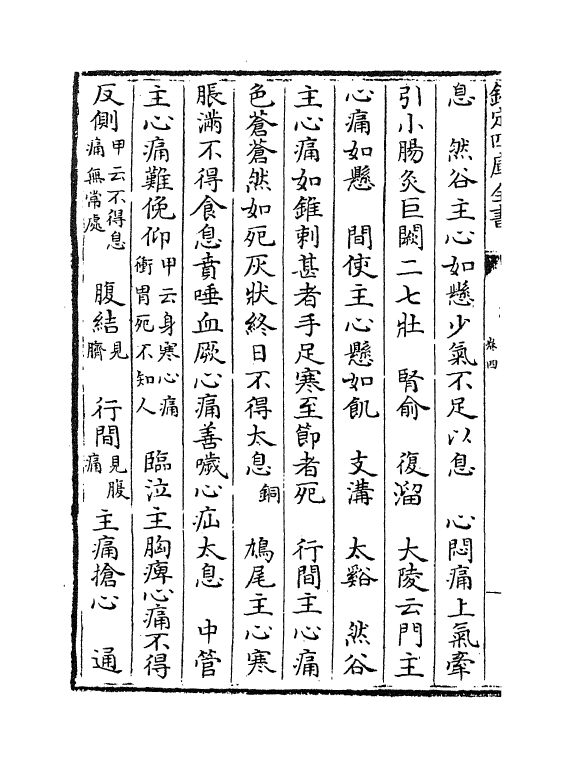 欽定四庫全書
卷四
息　然谷主心如懸少氣不足以息　心悶痛上氣牽
引小腸灸巨闕二七壯　腎俞　復溜　大陵云門主
心痛如懸　間使主心懸如飢　支溝　太谿　然谷
主心痛如錐刺甚者手足寒至節者死　行間主心痛
色蒼蒼然如死灰狀終日不得太息銅　鳩尾主心寒
脹滿不得食息賁唾血厥心痛善噦心疝太息　中管
主心痛難俛仰甲云身寒心痛衝胃死不知人　臨泣主胸痺心痛不得
反側甲云不得息痛無常處　腹結見臍　行間見腹痛　主痛搶心　通